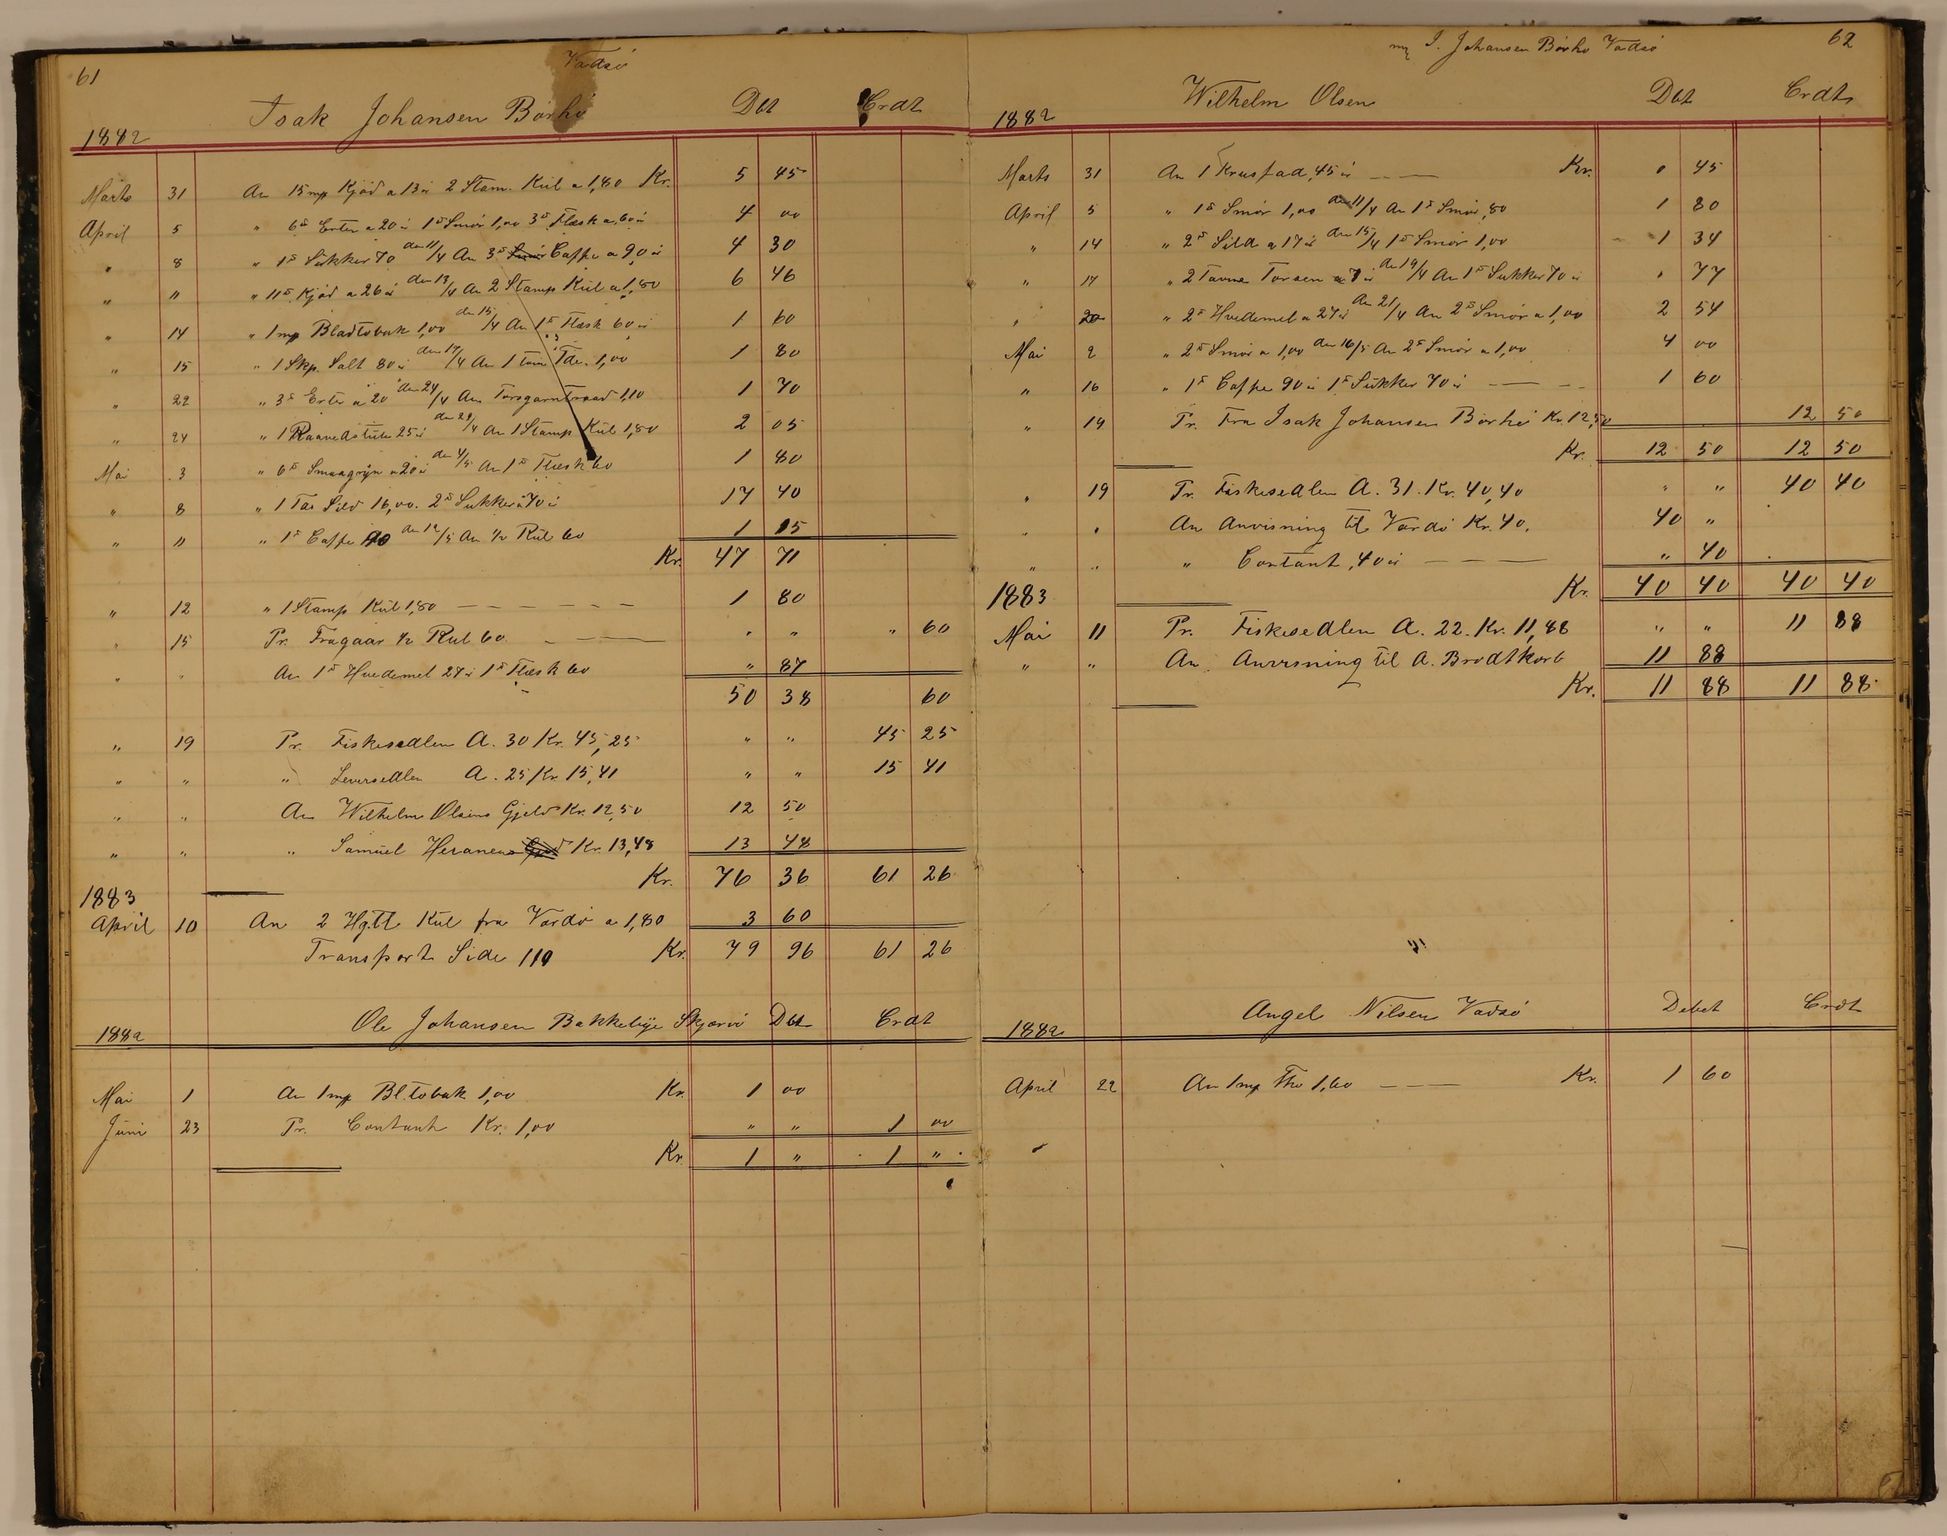 61
Vadsö
Isak Johansen Börhö Det Crdt
1882
Marts 31 An 15 mp Kjöd a 13 ö 2 Stam. Kul a 1,80 Kr. 5 45
April 5 " 6 ℔ Erter a 20 ö 1 ℔ Smör 1,00 3 ℔ Flæsk a 60 ö 4 00
" 8 " 1 ℔ Sukker 70 den 11/4 An 3 ℔ Caffe a 90 ö 4 30
" 11 " 11 ℔ Kjöd a 26 ö den 13/4 An 2 Stamp Kul a 1,80 6 46
" 14 " 1 mp Bladtobak 1,00 den 15/4 An 1 ℔ Flæsk 60 ö 1 60
" 15 " 1 Skp. Salt 80 ö den 17/4 An 1 tom Tde. 1,00 1 80
" 22 " 3 ℔ Erter a 20 den 24/4 An Torsgarntraad 1,10 1 70
" 24 " 1 25 ö den 29/4 An 1 Stamp Kul 1,80 2 05
Mai 3 " 6 ℔ Smaagryn a 20 ö den 4/5 An 1 ℔ Flæsk 60 1 80
" 8 " 1 Tde Sild 16,00. 2 ℔ Sukker a 70 ö 17 40
" 11 " 1 ℔ Caffe 90 den 12/5 An 1/2 Rul 60 1 15
Kr. 47 71
" 12 " 1 Stamp Kul 1,80 1 80
" 15 Pr. Fragaar 1/2 Rul 60 " " " 60
" " An 1 ℔ Hvedemel 27 ö 1 ℔ Flæsk 60 " 87
50 38 60
" 19 Pr. Fiskesedlen A. 30 Kr. 45,25 " " 45 25
" " " Leversedlen A. 25 Kr. 15,41 " " 15 41
" " An Wilhelm Olsens Gjeld Kr. 12,50 12 50
" " " Samuel Heranens Kr. 13,48 13 48
Kr. 76 36 61 26
1883
April 10 An 2 Hgtl Kul fra Vardö a 1,80 3 60
Transport Side 110 Kr. 79 96 61 26
Ole Johansen Bakkebye Skjervö Det Crdt
1882
Mai 1 An 1 mp Bl. tobak 1,00 Kr. 1 00
Juni 23 Pr. Contant Kr. 1,00 " " 1 00
Kr. 1 " 1 "
62
I. Johansen Börhö Vadsö
Wilhelm Olsen Det Crdt
1882
Marts 31 An 1 Krusfad ,45 ö Kr. " 45
April 5 " 1 ℔ Smör 1,00 den 11/4 An 1 ℔ Smör ,80 1 80
" 14 " 2 ℔ Sild a 17 ö den 15/4 1 ℔ Smör 1,00 1 34
" 17 " 2 Tavne Torsen a 7 ö den 19/4 An 1 ℔ Sukker 70 ö " 77
" 20 " 2 ℔ Hvedemel a 27 ö den 21/4 An 2 ℔ Smör a 1,00 2 54
Mai 2 " 2 ℔ Smör a 1,00 den 16/5 An 2 ℔ Smör a 1,00 4 00
" 16 " 1 ℔ Caffe 90 ö 1 ℔ Sukker 70 ö 1 60
" 19 Pr. Fra Isak Johansen Börhö Kr. 12,50 12 50
Kr. 12 50 12 50
" 19 Pr. Fiskesedlen A. 31. Kr. 40,40 " " 40 40
" " An Anvisning til Vardö Kr. 40. 40 "
" " " Contant ,40 ö " 40
Kr. 40 40 40 40
1883
Mai 11 Pr. Fiskesedlen A. 22. Kr. 11,88 " " 11 88
" " An Anvisning til A. Brodtkorb 11 88
Kr. 11 88 11 88
Angel Nilsen Vadsö Debet Crdt
1882
April 22 An 1 mp The 1,60 Kr. 1 60